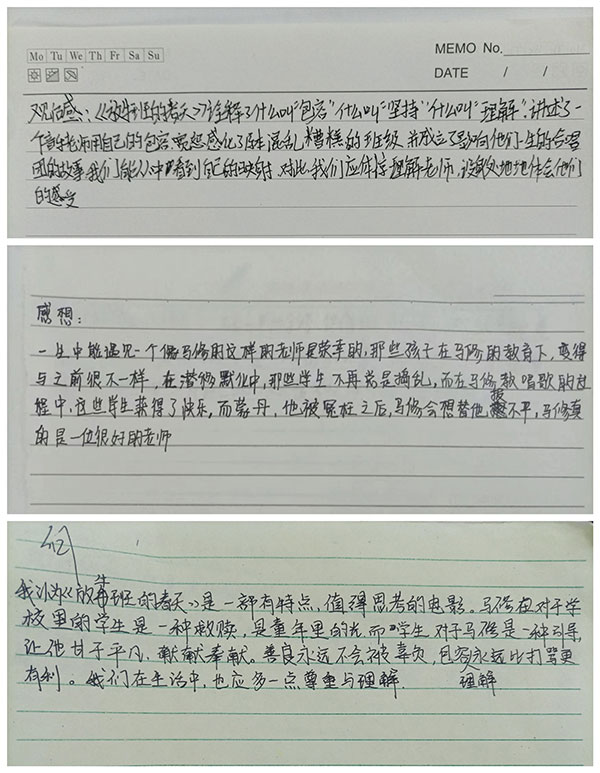 Mo Tu We Th Fr Sa Su
MEMO No.
DATE / /
观后感：《放牛班的春天》诠释了什么叫"包容"什么叫"坚持"什么叫"理解".讲述了一
个音乐老师用自己的包容 感化了 混乱,糟糕的班级 并成立了影响他们一生的合唱
团的故事.我们能从中看到自己的映射.对此,我们应体谅理解老师,设身处地地体会他们
的感受
感想：
一生中能遇见一个像马修的这样的老师是荣幸的,那些孩子在马修的教育下,变得
与之前很不一样,在潜移默化中,那些学生不再总是捣乱,而在马修教唱歌的过
程中,这些学生获得了快乐,而蒙丹,他被冤枉之后,马修会想替他报不平,马修真
的是一位很好的老师
我认为《放牛班的春天》是一部有特点,值得思考的电影。马修在对于学
校里的学生是一种救赎,是童年里的光而学生对于马修是一种引导,
让他甘于平凡,献献奉献。善良永远不会被辜负,包容永远比打骂更
有利。我们在生活中,也应多一点尊重与理解. 理解